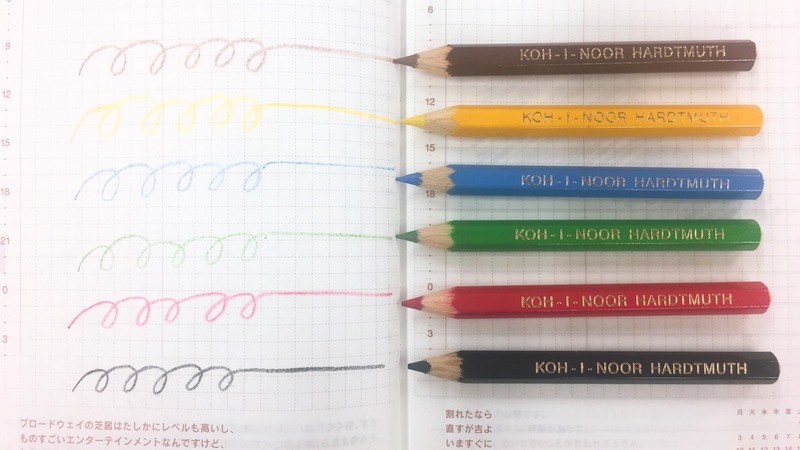 6
9
12
15
18
21
0
3
12
15
18
3
KOH-I-NOOR HARDTMUTH
KOH-I-NOOR HARDTMUTH
KOH-I-NOOR HARDTMUTH
KOH-I-NOOR HARDTMUTH
KOH-I-NOOR HARDTMUTH
KOH-I-NOOR HARDTMUTH
ブロードウェイの芝居はたしかにレベルも高いし、
ものすごいエンターテインメントなんですけど、
割れたなら
直すが吉よ
いますぐに
月 火 水 木 金
3 4 5 6 7 8